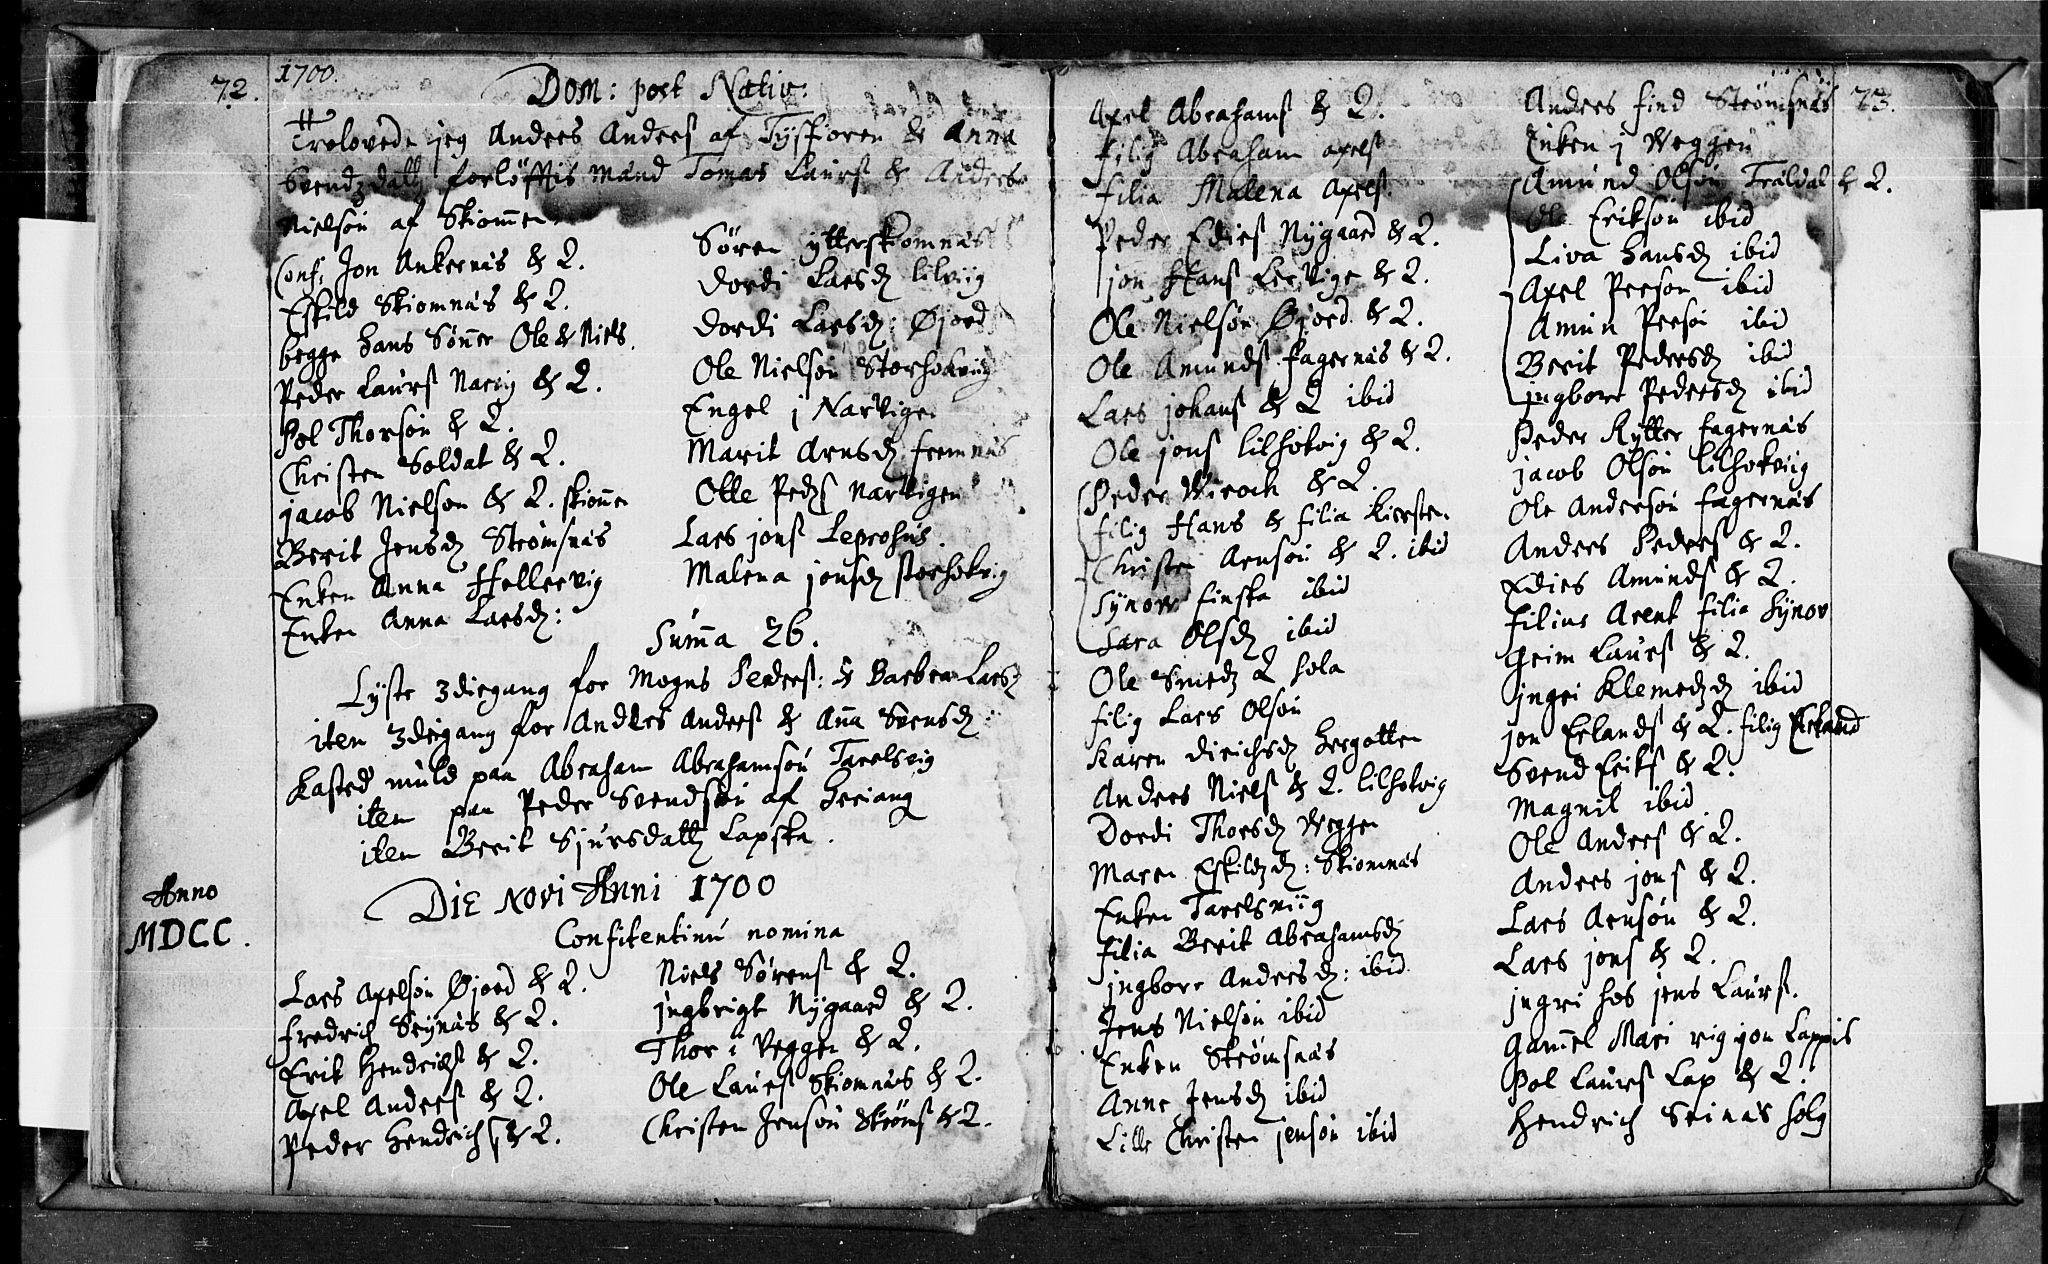 72.
1700.
Dom: post Nativ:
Trolovede jeg Anders Anders af Tysfioren & Anna
Svendzdatt forløfftis mænd Tomas Laurs & Anders
Nielsøn af Skiommen
Conf: Jon Ankernäs & Q.
Eskild Skiomnäs & Q.
begge hans Sønner Ole & Niels.
Peder Laurs Narvig & Q.
Pol Thorsøn & Q.
Christen Soldat & Q.
jacob Nielsøn & Q. skiommen
Berit Jensd Strømsnäs
Enken Anna Hellervig
Enken Anna Larsd:
Søren ytterskiomnäs
Dordi Larsd lilviig
Dordi Larsd: Øjord
Ole Nielsøn Storhokviig
Engel j Narvigen
Marit Arnsd fremnäs
Olle Peds Narvigen
Lars jons Leprosus.
Malena jonsd storhokvig
Summa 26.
Lyste 3diegang for Mogns Peders: & Barbra Lars
iten 3diegang for Anders Anders & Ana Svensd:
Kasted muld paa Abraham Abrahamsøn Tarelsvig
iten paa Peder Svendsøn af heriang
iten Berit Sjursdatt Lapska.
Anno
MDCC.
Die Novi Anni 1700
Confitentium nomina
Lars Axelsøn Øjord & Q.
fredrich Seynäs & Q.
Erik Hendrichs & Q.
Axel Anders & Q.
Peder Hendrichs & Q.
Niels Sørens & Q.
jngbrigt Nygaard & Q.
Thor i Veggen & Q.
Ole Laurs Skiomnäs & Q.
Christen Jensøn Strøms & Q.
Axel Abrahams & Q.
filig Abraham axels
filia Malena Axels
Peder Edies Nygaard & Q.
jon Hans Lervige & Q.
Ole Nielsøn Øjord & Q.
Ole Amunds fagernäs & Q.
Lars johans & Q ibid
Ole jons lilhokvig & Q.
Peder Wiroch & Q.
filig Hans & filia Kiersten
Christen Arnsøn & Q. ibid
Synov finska ibid
Sara Olsd ibid
Ole Smedz Q sola
filig Lars Olsøn
Karen Dirichsd hergotten
Anders Niels & Q. lilhokvig
Dordi Thorsd Veggen
Maren Eskildzd: Skiomnäs
Enken Tarelsviig
filia Berit Abrahamsd
jngborr Andersd: ibid
Jens Nielsøn ibid
Enken Strømsnäs
Anne Jensd ibid
Lille Christen jensøn ibid
73.
Anders find Strømsnäs
Enken j Veggen
Amund Olsøn Träldal & Q.
Ole Eriksøn ibid
Liva hansd ibid
Axel Persøn ibid
Amun Persøn ibid
Berit Pedersd ibid
jngborr Pedersd ibid
Peder Rytter fagernäs
jacob Olsøn lilhokviig
Ole Andersøn fagernäs
Anders Peders & Q.
Edies Amunds & Q.
filius Arent filia Synov
Grim Laurs & Q.
jngri Klemedzd ibid
jon Erlands & Q. filig Erland
Svend Eriks & Q.
Magnil ibid
Ole Anders & Q.
Anders jons & Q.
Lars Arnsøn & Q.
Lars jons & Q.
jngri hos jens Laurs.
Gammel Mari vig jon Lappis
Pol Laurs Lap & Q.
Hendrich Seinäs solg